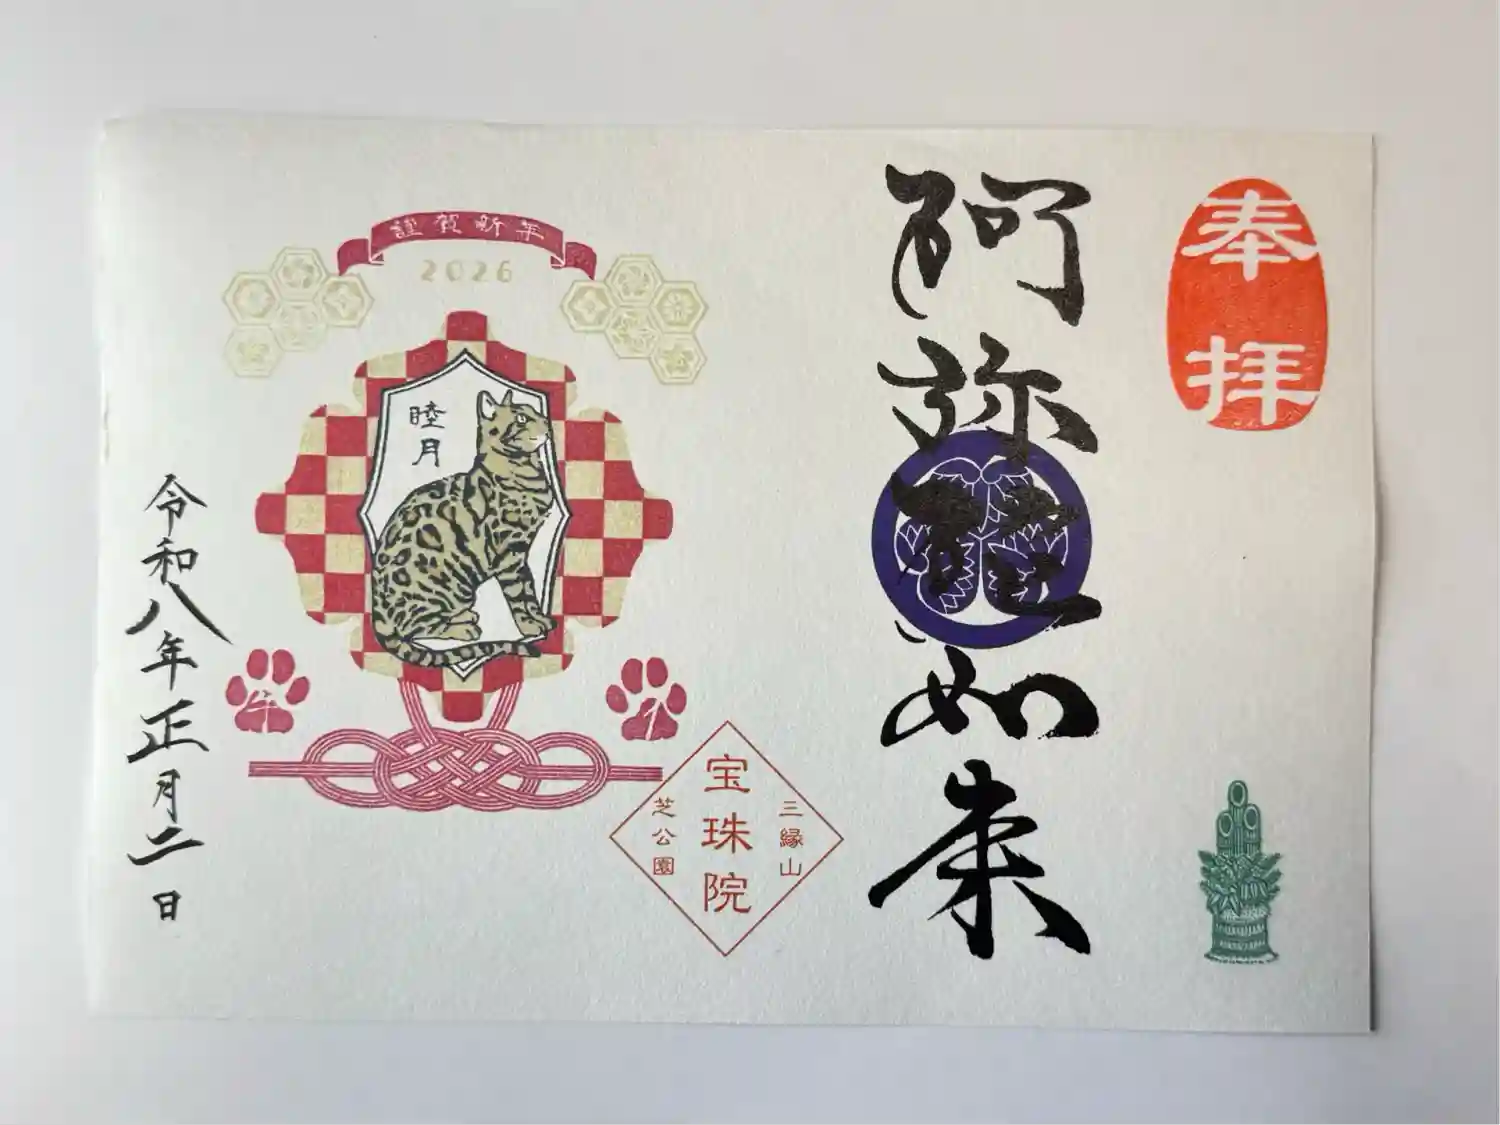 奉拝
阿弥陀如来
謹賀新年
2026
睦月
三縁山
宝珠院
芝公園
令和八年正月二日